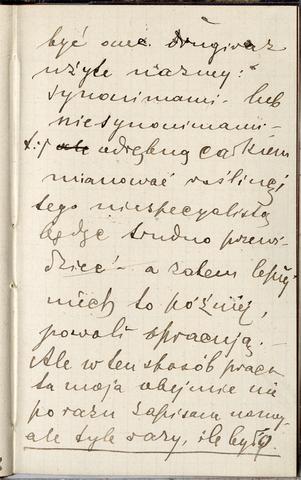 być one drugi raz
użyte nazwy:
synonimami - lub
niesynonimami -
t:j odrębną całkiem
mianować roślinę;
tego niespecyalistą
będąc trudno przewi-
dzieć - a zatem lepiej
niech to później,
powoli opracują. -
Ale w ten sposób praca
ta moja obejmie nie
po razu zapisane nazwy
ale tyle razy, ile było